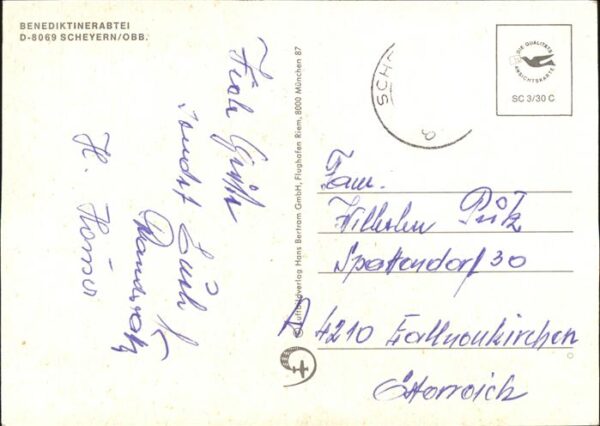 BENEDIKTINERABTEI
D-8069 SCHEYERN/OBB.
Grüße
sendet Euch
H.
© Luftbildverlag Hans Bertram GmbH, Flughafen Riem, 8000 München 87
SCHA
DIE QUALITÄTS
ANSICHTSKARTE
SC 3/30 C
Fam.
Wilhelm Pütz
Spattendorf 30
A 4210 Gallneukirchen
Österreich